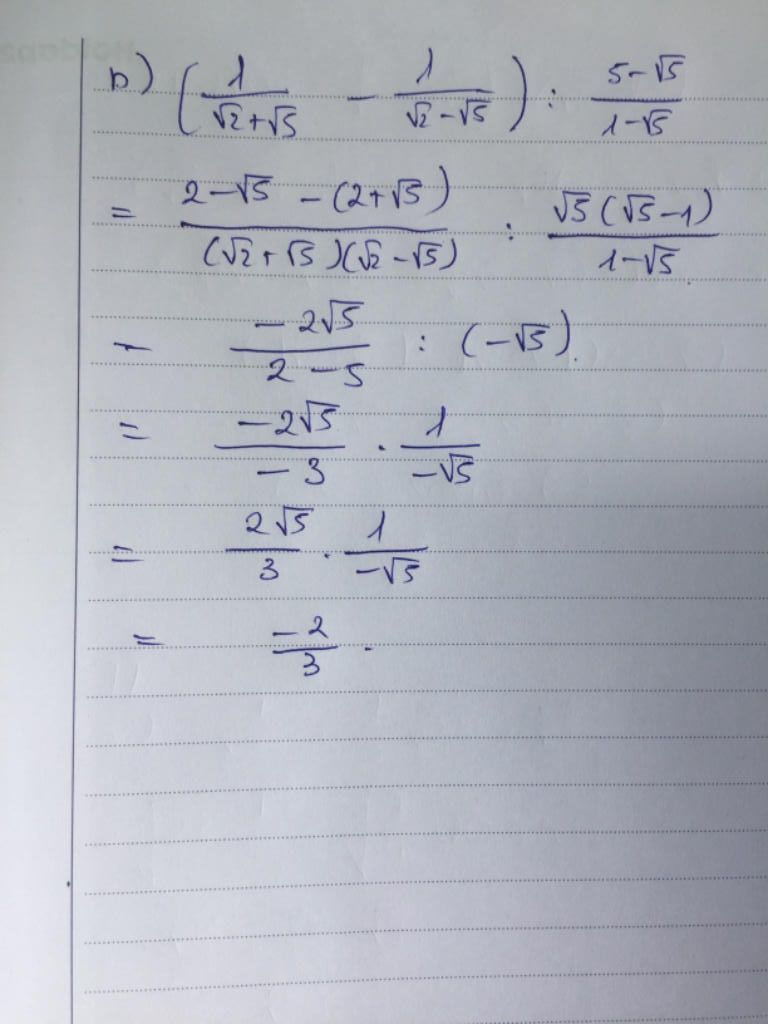 b) (1/(√2+√5) - 1/(√2-√5)) : (5-√5)/(1-√5)
= (2-√5 -(2+√5))/((√2+√5)(√2-√5)) : (√5(√5-1))/(1-√5)
- (-2√5)/(2-5) : (-√5).
= (-2√5)/(-3) . 1/(-√5)
= (2√5)/3 . 1/(-√5)
= (-2)/3 .